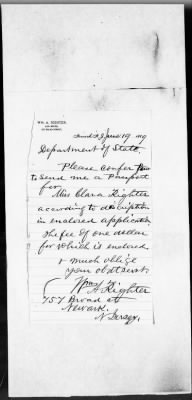 WM. A. RIGHTER,
June 19
Department of State
Please confer
to send me a Passport
for
Miss Clara Righter
according to description
in enclosed application
the fee of one dollar
for which is enclosed
& much oblige
your obt servt
Wm A. Righter
757 Broad st
Newark.
N Jersey.